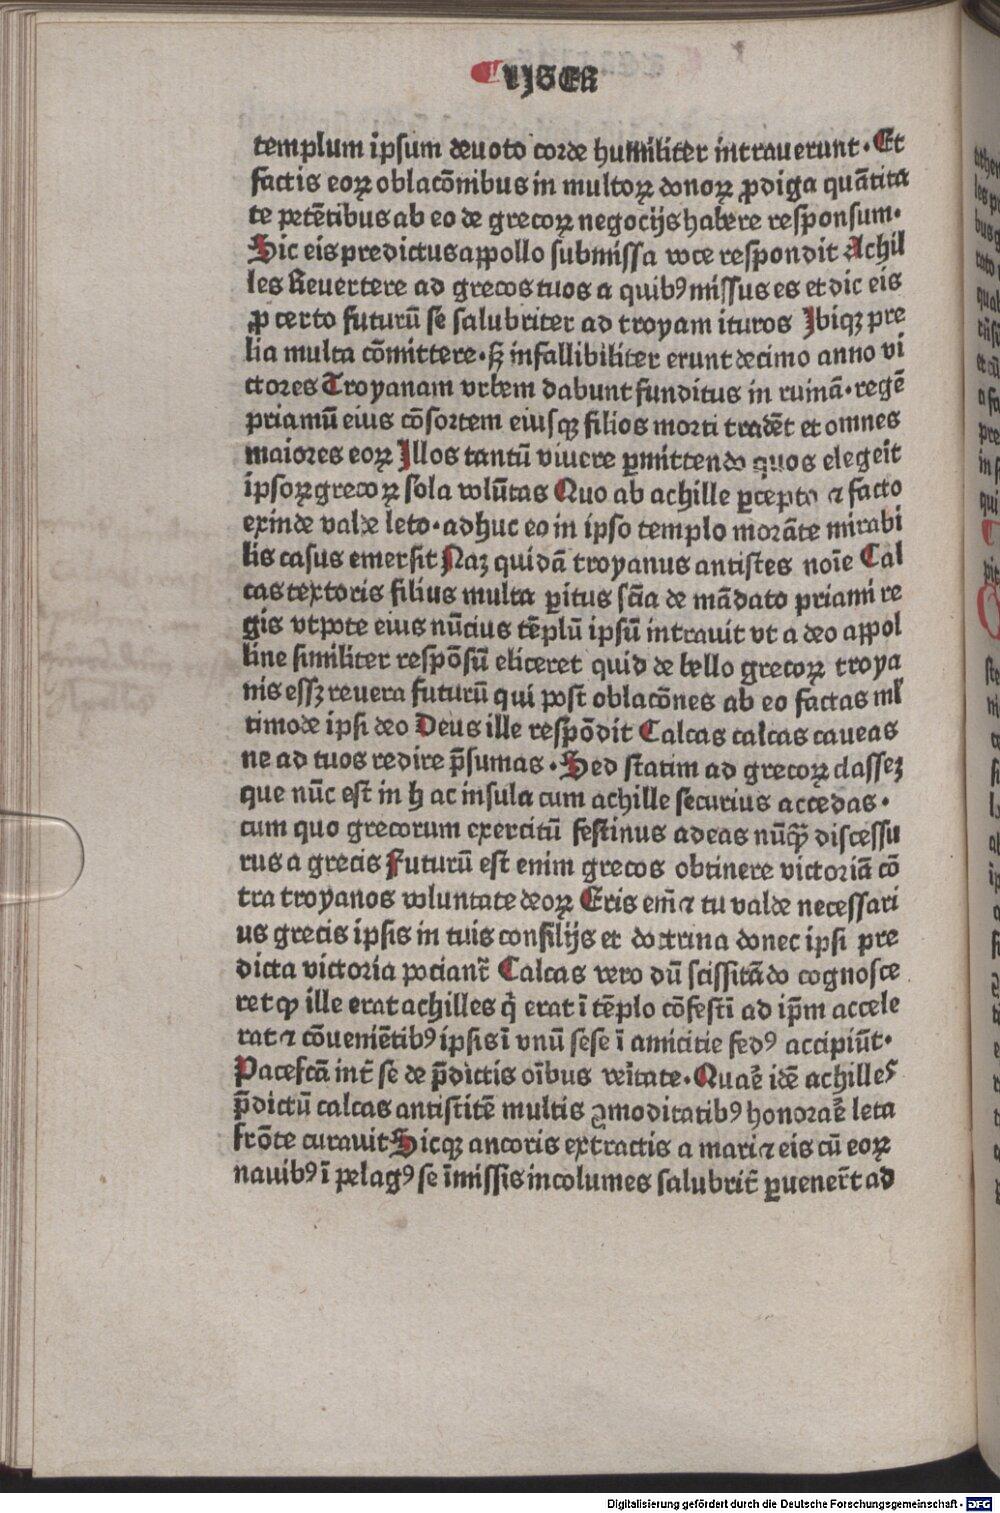 LIBER
templum ipsum deuoto corde humiliter intrauerunt. Et
factis eoꝝ oblacōnibus in multoꝝ donoꝝ ꝓdiga quātita
te petētibus ab eo de grecoꝝ negocijs habere responsum.
Sic eis predictus appollo submissa voce respondit Achil
les Reuertere ad grecos tuos a quibꝰ missus es et dic eis
ꝓ certo futurū se salubriter ad troyam ituros Ibiqꝫ pre
lia multa cōmittere. sꝫ infallibiliter erunt decimo anno vi
ctores Troyanam vrbem dabunt funditus in ruinā. regē
priamū eius cōsortem eiusqꝫ filios morti tradēt et omnes
maiores eoꝝ Illos tantū viuere ꝑmittendo quos elegeit
ipsoꝝ grecoꝝ sola volūtas Quo ab achille ꝑcepto ⁊ facto
exinde valde leto. adhuc eo in ipso templo morāte mirabi
lis casus emersit Naꝫ quidā troyanus antistes noīe Cal
cas textoris filius multa ꝑitus scīa de mādato priami re
gis vtpote eius nūcius tēplū ipsū intrauit vt a deo appol
line similiter respōsū eliceret quid de bello grecoꝝ troya
nis essꝫ reuera futurū qui post oblacōnes ab eo factas ml̄
timode ipsi deo Deus ille respōdit Calcas calcas caueas
ne ad tuos redire p̄sumas. Sed statim ad grecoꝝ classeꝫ
que nūc est in h ac insula cum achille securius accedas.
cum quo grecorum exercitū festinus adeas nūqꝫ̄ discessu
rus a grecis Futurū est enim grecos obtinere victoriā cō
tra troyanos voluntate deoꝝ Eris em̄ ⁊ tu valde necessari
us grecis ipsis in tuis consilijs et doctrina donec ipsi pre
dicta victoria pociant̄ Calcas vero dū scissitādo cognosce
ret ꝙ ille erat achilles q̄ erat ī tēplo cōfestī ad ip̄m accele
rat ⁊ cōueniētibꝰ ipsis ī vnū sese ī amicitie fedꝰ accipiūt.
Pacefcā int̄ se de p̄dictis oībus veītate. Quaē idē achilles
p̄dictū calcas antistitē multis ꝯmoditatibꝰ honoraē leta
frōte curauit Sicqꝫ ancoris extractis a mari ⁊ eis cū eoꝝ
nauibꝰ ī pelagꝰ se īmissis incolumes salubrit̄ ꝑuener̄t ad
Digitalisierung gefördert durch die Deutsche Forschungsgemeinschaft - DFG